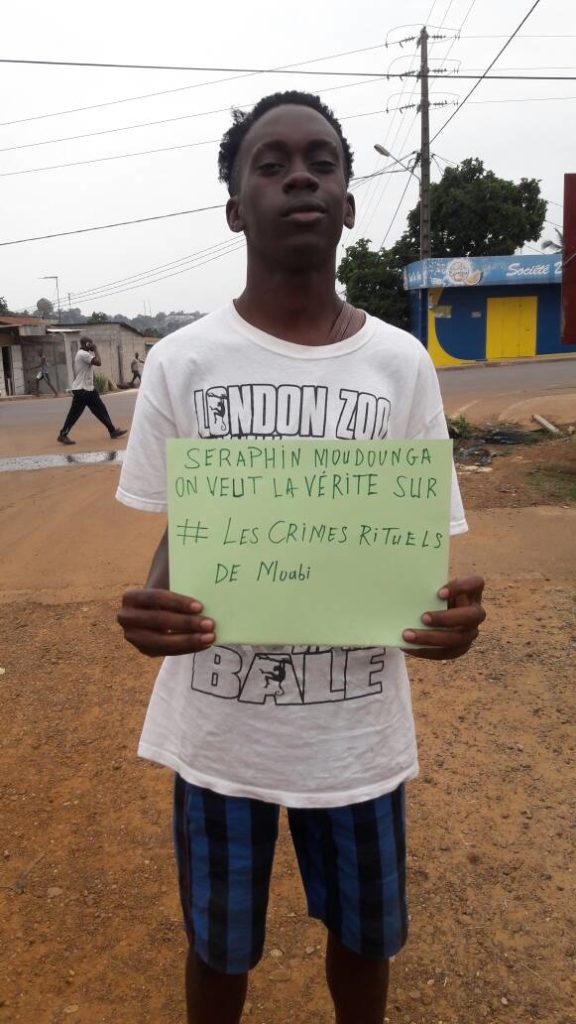 Société
LONDON ZOO
SERAPHIN MOUDOUNGA
ON VEUT LA VÉRITE SUR
# LES CRIMES RITUELS
DE Muabi
BALE